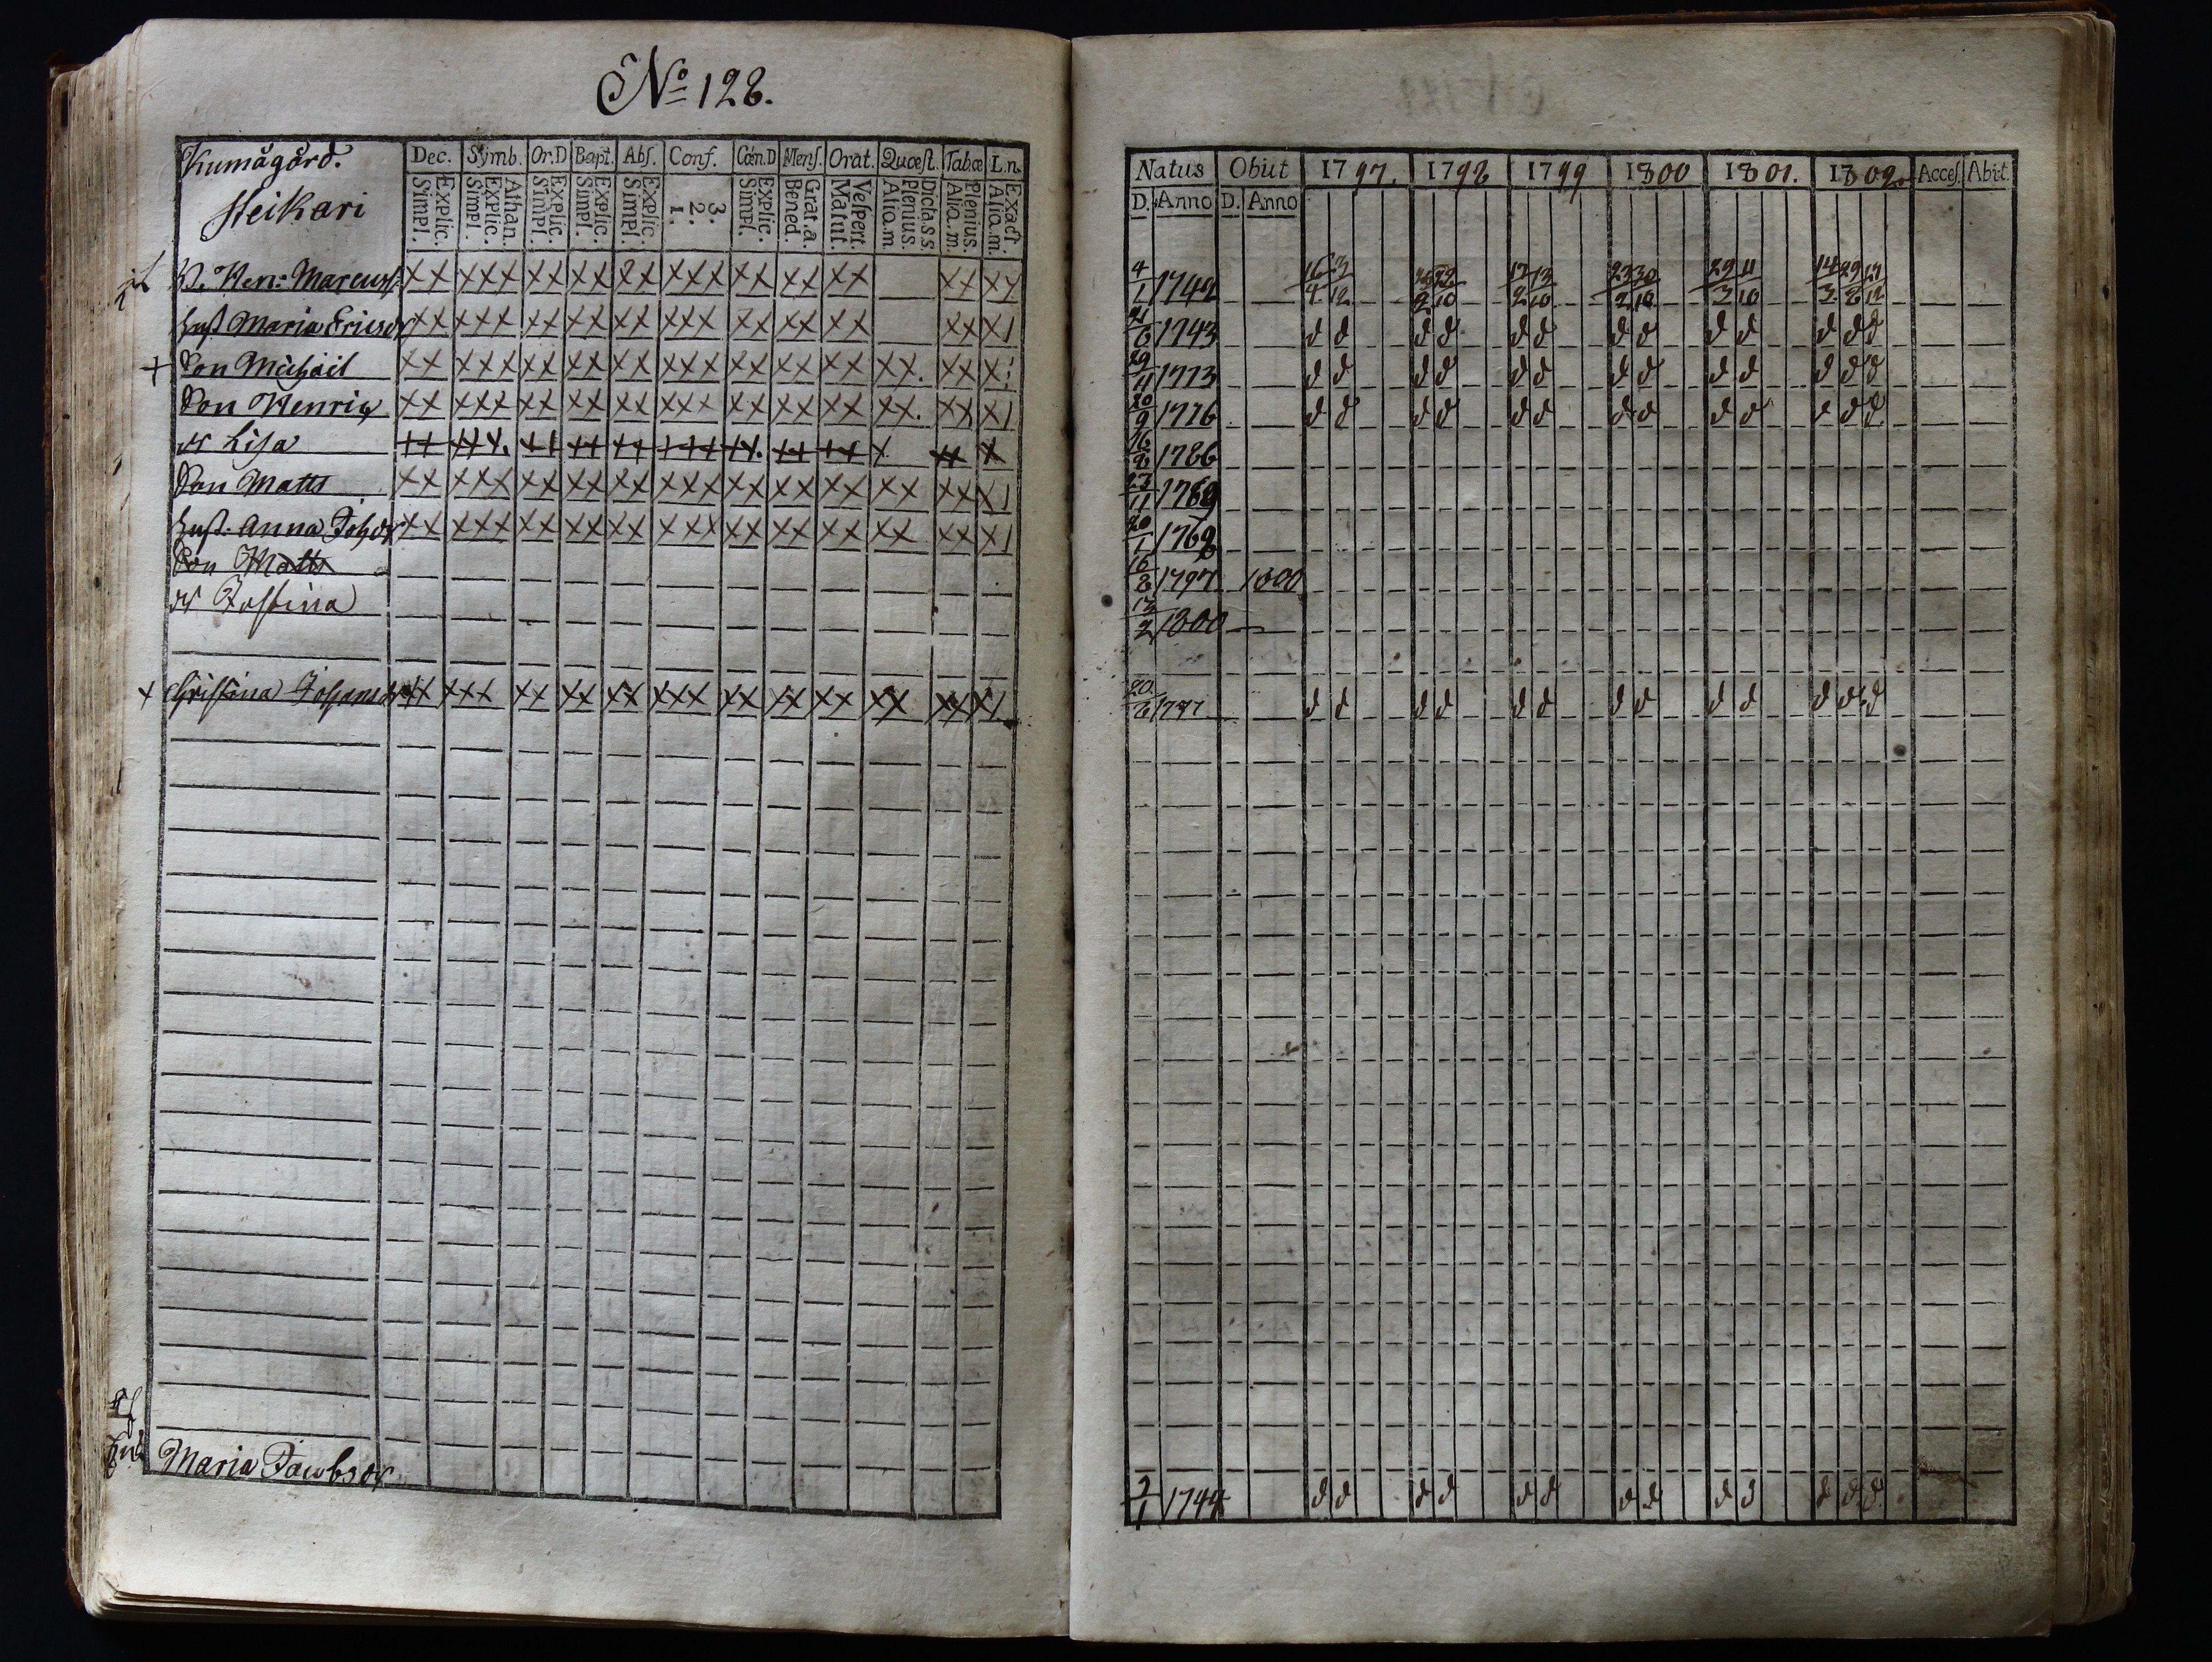 No 128.
Kumågård.
Heikari
Dec. Symb. Or.D Bapt. Abs. Conf. Cœn.D Mens. Orat. Quæst. Tabæ L.n.
Explic. Simpl. Athan. Explic. Simpl. Explic. Simpl. Explic. Simpl. Explic. Simpl. 3. 2. 1. Explic. Simpl. Grat.a. Bened. Vespert. Matut. Dicta.s.s. Plenius. Alia.m. Plenius. Alia.m. Exact. Alia.m.
Hen: Marcuss. xx xxx xx xx xx xxx xx xx xx xx xx
Hust Maria Ericsdr xx xxx xx xx xx xxx xx xx xx xx x1
+ Son Michail xx xxx xx xx xx xxx xx xx xx xx. xx x
Son Henric xx xxx xx xx xx xxx xx xx xx xx. xx x1
dr Lisa
Son Matts xx xxx xx xx xx xxx xx xx xx xx xx x1
Hust. Anna Johdr xx xxx xx xx xx xxx xx xx xx xx xx x1
Son Matts
dr Justina
+ Christina Johansdr xx xxx xx xx xx xxx xx xx xx xx xx x1
Maria Jacobsdr
Natus Obiit 1797. 1798 1799 1800 1801. 1802. Acces. Abit.
D. Anno D. Anno
4/1 1742 16/4 3/12 12/2 13/10 23/2 30/10 29/3 11/10 14/3 29/8
1743 d d d d d d d d d d d d d
29/4 1773 d d d d d d d d d d d d d
20/9 1776 d d d d d d d d d d d d d
16/8 1786
23/11 1769
20/1 1768
16/8 1797 1800
13/2 1800
20/6 1777 d d d d d d d d d d d d d
1744 d d d d d d d d d d d d d